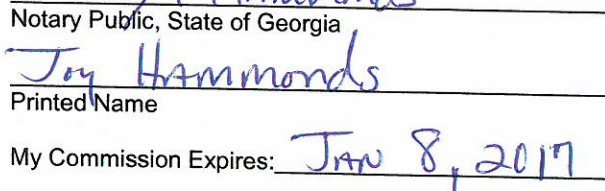 Notary Public, State of Georgia
Joy Hammonds
Printed Name
My Commission Expires: Jan 8, 2017